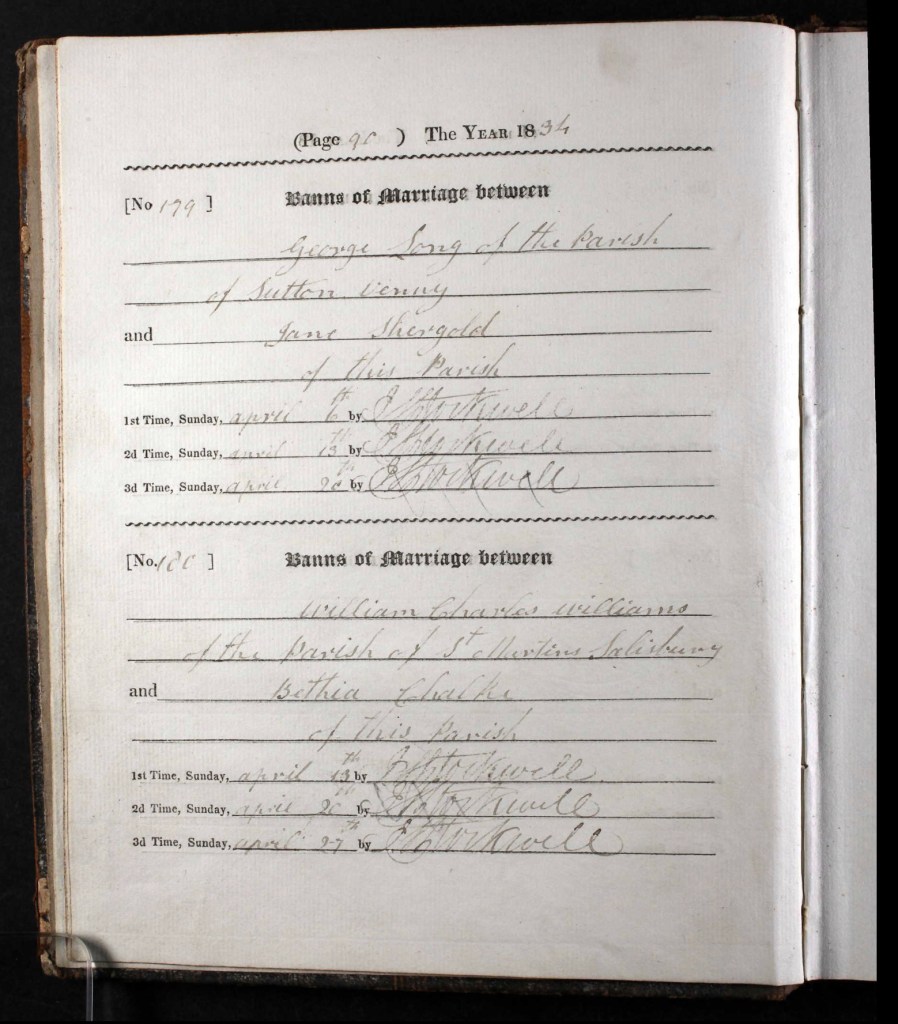 (Page 90 ) The YEAR 1834
[No 179 ] Banns of Marriage between
George Long of the Parish
of Sutton Venny
and Jane Shergold
of this Parish
1st Time, Sunday, april 6th by Stockwell
2d Time, Sunday, april 13th by Stockwell
3d Time, Sunday, april 20th by Stockwell
[No. 180 ] Banns of Marriage between
William Charles Williams
of the Parish of St Martins Salisbury
and Bethia Chalke
of this Parish
1st Time, Sunday, april 13th by Stockwell
2d Time, Sunday, april 20th by Stockwell
3d Time, Sunday, april 27th by Stockwell